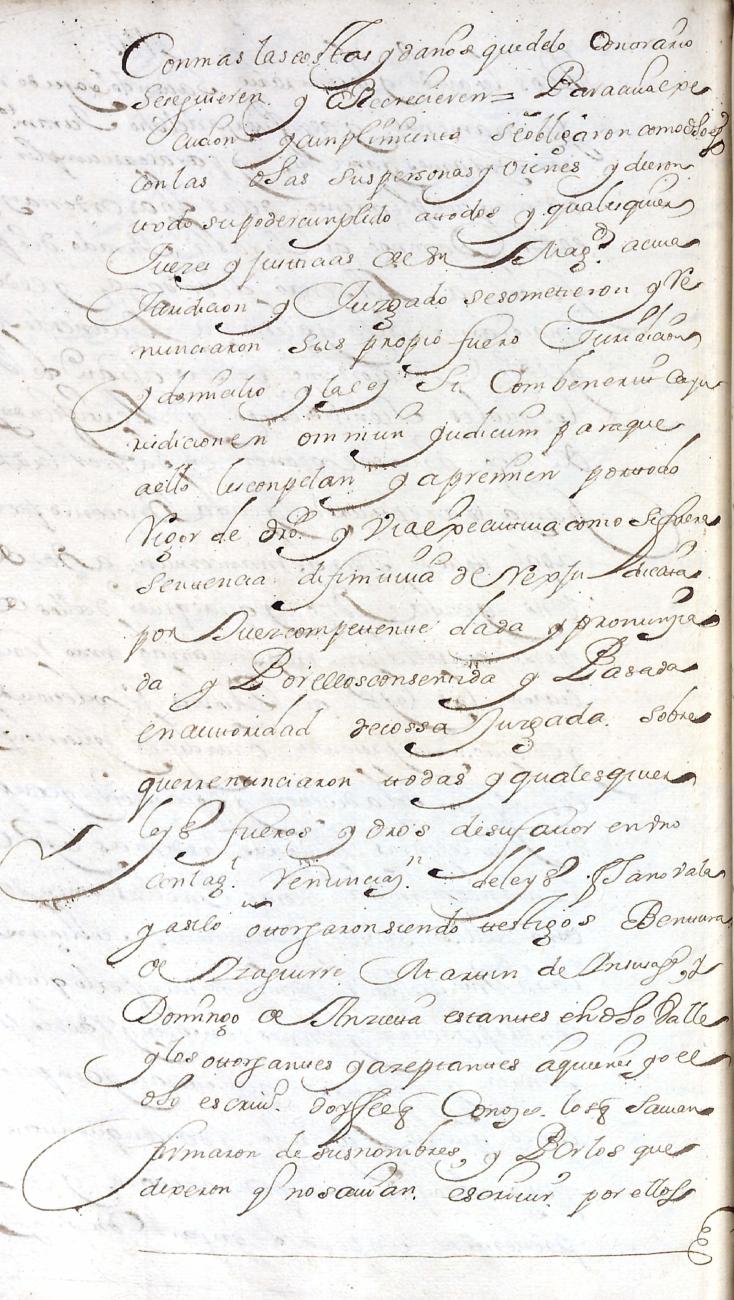 Con mas las costas y daños que delo Contrario
seseguieren y Recrecieren = Para cuia exe
cucion y cumplimiento se obligaron como dho es
con las dhas sus personas y vienes y dieron
todo su poder cumplido a todos y qualesquier
Juezes y justicias de su Magd. a cuia
Juridicion y Juzgado se sometieron y Re
nunciaron sus propio fuero Juridicion
y domicilio y la ley Si Combenerit de ju
ridicion en omniun judicum para que
a ello les conpelan y apremien por todo
Rigor de dro. y Via executiva como si fuera
sentencia difinitiva de
por Juez competente dada y pronuncia
da y Por ellos consentida y Pasada
en autoridad de cossa Juzgada sobre
que rrenunciaron todas y qualesquier
leys fueros y dros de su favor en uno
con la gl. renunciazn. de leys fha no vala
y asi lo otorgaron siendo testigos Bentura
de Yzaguirre Martin de y
Domingo de Anzieta estantes en dho Valle
y los otorgantes y azeptantes a quienes yo el
dho escrivo. doy ffee q Conozco los q savian
firmaron de sus nombres, y Por los que
dixeron q no savian escrivir por ellos